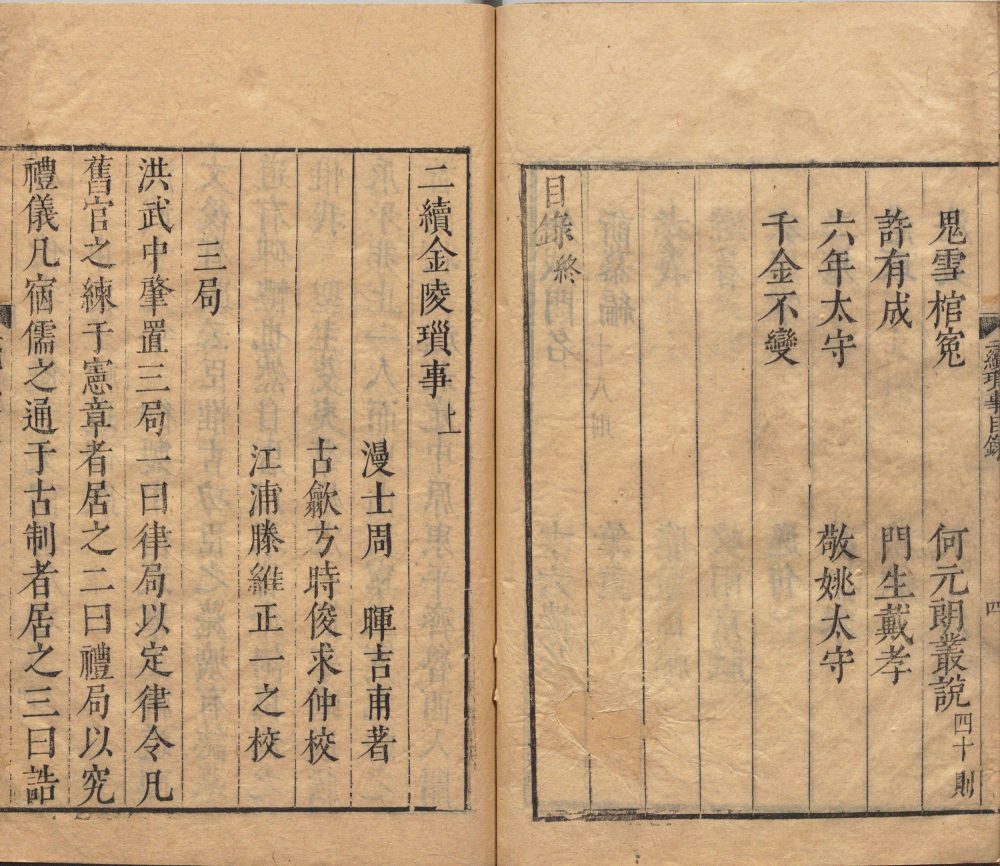 鬼雪棺寃　何元朗叢說四十則
許有成　門生戴孝
六年太守　敬姚太守
千金不變
目錄終
二續瑣事目錄　四
二續金陵瑣事上
漫士周　暉吉甫著
古歙方時俊求仲校
江浦滕維正一之校
三局
洪武中肇置三局一曰律局以定律令凡
舊官之練于憲章者居之二曰禮局以究
禮儀凡宿儒之通于古制者居之三曰誥